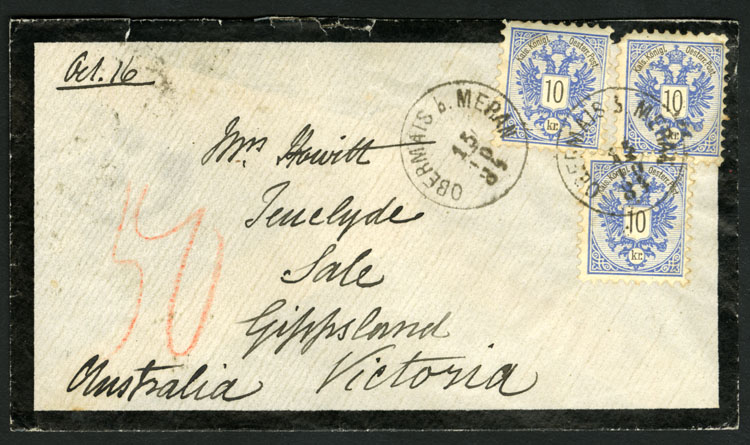 Oct. 16
Kais. Königl. Oesterr. Post.
10
kr.
Kais. Königl. Oesterr. Post.
10
kr.
OBERMAIS b. MERAN
15
10
84
OBERMAIS b. MERAN
15
10
84
Kais. Königl. Oesterr. Post.
10
kr.
Mrs Howitt
Tenclyde
Sale
Gippsland
Australia Victoria